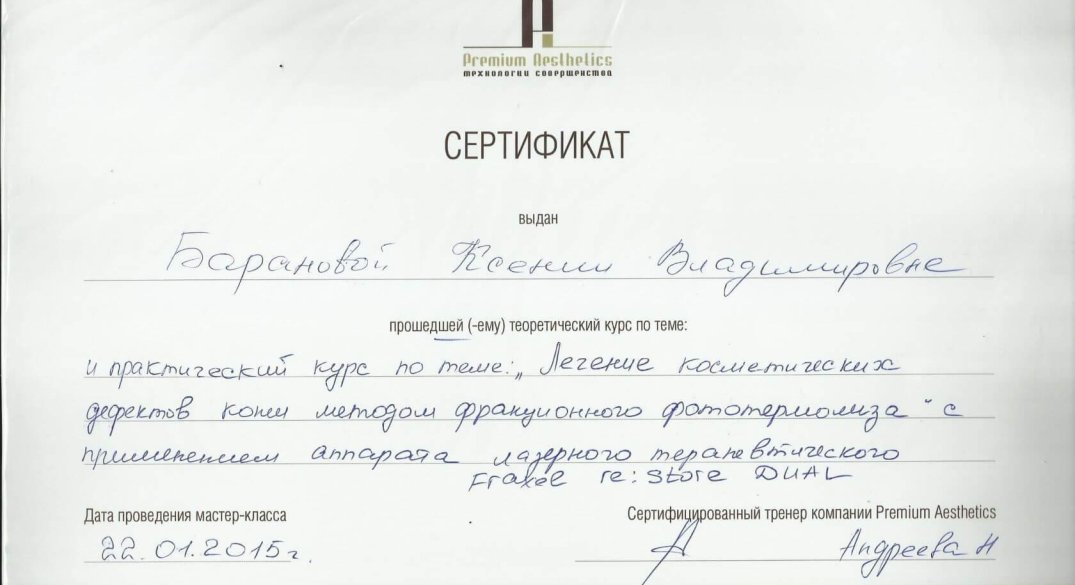 Premium Aesthetics
технологии совершенства
СЕРТИФИКАТ
выдан
Барановой Ксении Владимировне
прошедшей (-ему) теоретический курс по теме:
и практический курс по теме: „Лечение косметических
дефектов кожи методом фракционного фототермолиза“ с
применением аппарата лазерного терапевтического
Fraxel re:store DUAL
Дата проведения мастер-класса
Сертифицированный тренер компании Premium Aesthetics
22.01.2015г.
Андреева Н